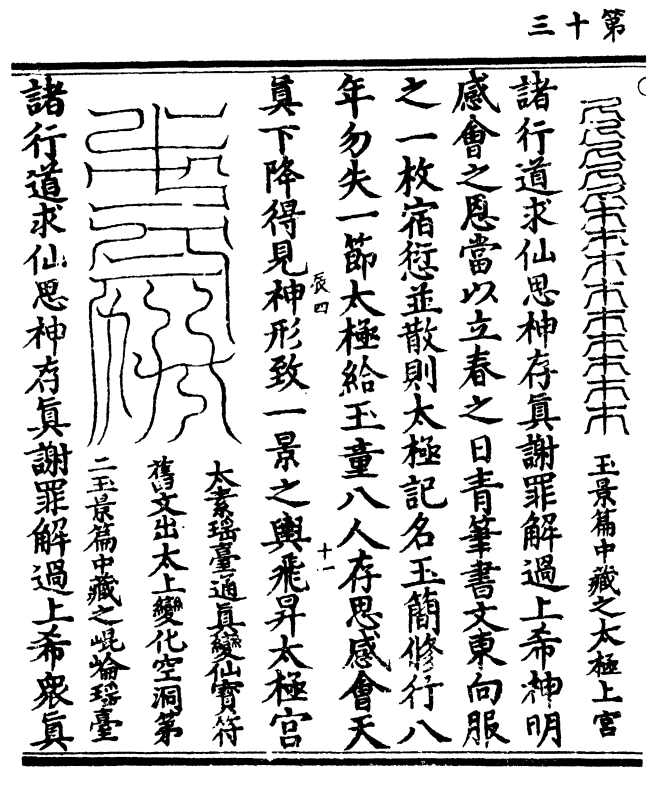 第十三
玉景篇中藏之太極上宮
諸行道求仙思神存真謝罪解過上希神明
感會之恩當以立春之日青筆書文東向服
之一枚宿愆並散則太極記名玉簡修行八
年勿失一節太極給玉童八人存思感會天
真下降得見神形致一景之輿飛昇太極宮
辰四
十一
太素瑤臺通真變仙寶符
舊文出太上變化空洞第
二玉景篇中藏之崐崘瑤臺
諸行道求仙思神存真謝罪解過上希衆真